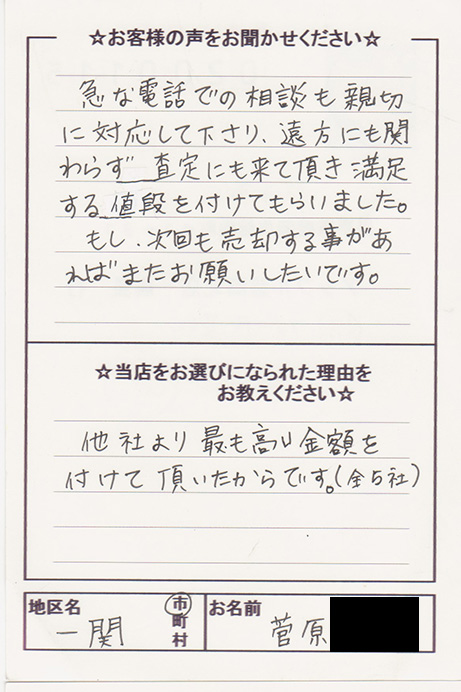 ☆お客様の声をお聞かせください☆
急な電話での相談も親切
に対応して下さり、遠方にも関
わらず査定にも来て頂き満足
する値段を付けてもらいました。
もし、次回も売却する事があ
ればまたお願いしたいです。
☆当店をお選びになられた理由を
お教えください☆
他社より最も高い金額を
付けて頂いたからです。(全5社)
地区名
一関
市
町
村
お名前
菅原